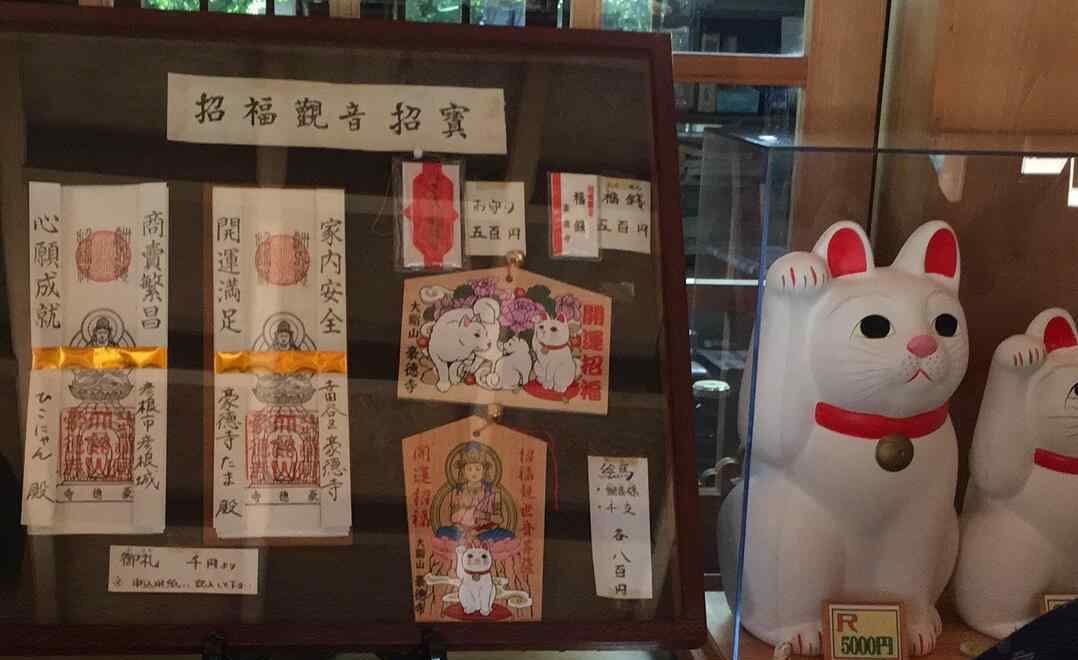 招福觀音招寳
商賣繁昌
心願成就
彦根市彦根城
ひこにゃん 殿
豪徳寺
家内安全
開運満足
世田谷区豪徳寺
豪徳寺たま 殿
豪徳寺
御礼 千円より
お守り
五百円
福銭
福銭
五百円
開運招福
大谿山 豪徳寺
招福観世音菩薩
開運招福
大谿山 豪徳寺
絵馬
・観音様
・干支
各八百円
R
5000円